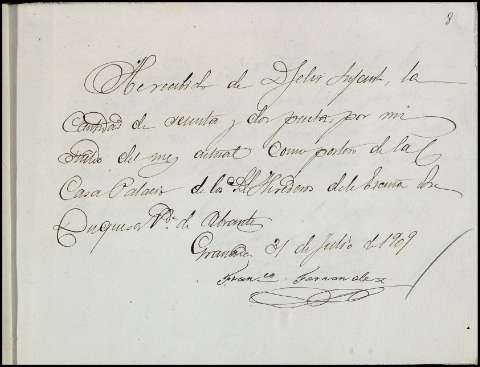 8
He recibido de D. Felix Infante, la
cantidad de sesenta y dos pesetas por mi
sueldo del mes actual como porton de la
Casa Palacio de los Herederos de la Excma Sra
Duquesa Vda de Abrantes
Granada 31 de Julio de 1909
Franco Fernandez